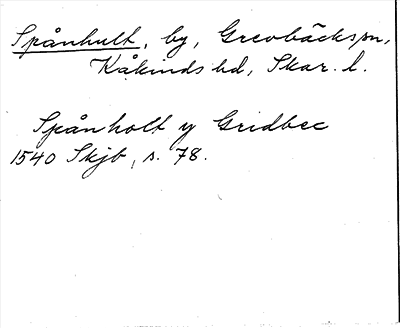 Spånhult, by, Grevbäckspn,
Kåkinds hd, Skar. l.
Spånholt y Gridbec
1540 Skjb, s. 78.